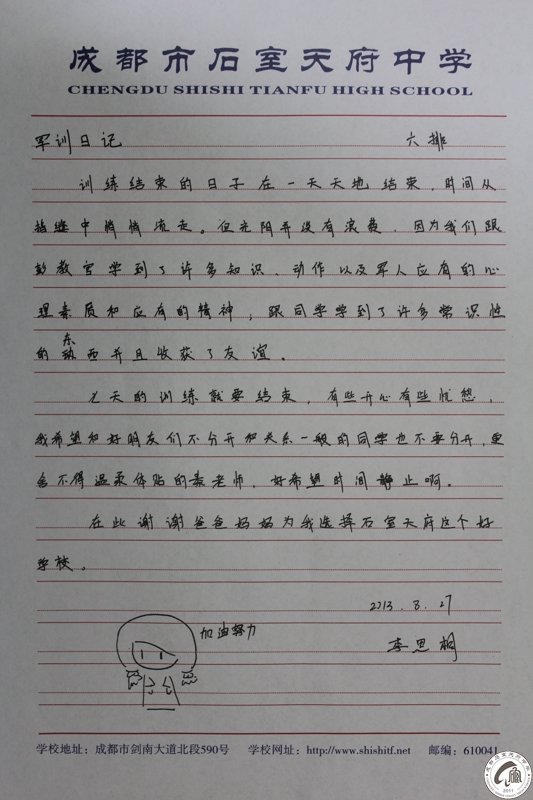 成都市石室天府中学
CHENGDU SHISHI TIANFU HIGH SCHOOL
军训日记 六排
训练结束的日子在一天天地结束,时间从
指缝中悄悄流走。但光阴并没有浪费,因为我们跟
彭教官学到了许多知识、动作以及军人应有的心
理素质和应有的精神,跟同学学到了许多常识性
的东西并且收获了友谊。
七天的训练就要结束,有些开心有些忧愁,
我希望和好朋友们不分开和关系一般的同学也不要分开,更
舍不得温柔体贴的袁老师,好希望时间静止啊。
在此谢谢爸爸妈妈为我选择石室天府这个好
学校。
2013.8.27
加油努力
李思桐
学校地址:成都市剑南大道北段590号 学校网址:http://www.shishitf.net 邮编:610041